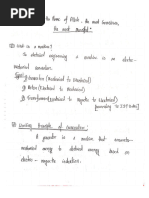 In the Name of Allah, the most beneficient,
the most merciful."
Q) What is a machine?
In electrical engineering a machine is an electro-
mechanical conversion.
Types
① Generator (Mechanical to Electrical)
② Motor (Electrical to Mechanical)
③ Transformer (Electrical to Magnetic to Electrical)
Working Principle of Generator:
A generator is a machine that converts
mechanical energy to electrical energy based on
electro-magnetic induction.